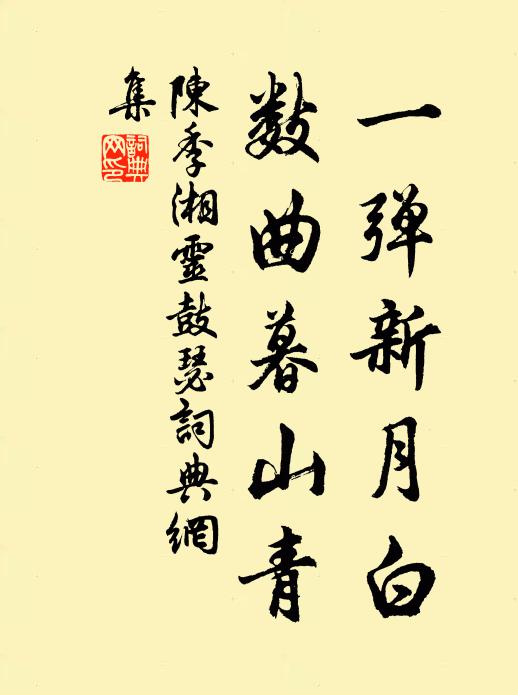 一弹新月白
数曲暮山青
陳季湘靈鼓瑟詞典網
集
詞典
网印